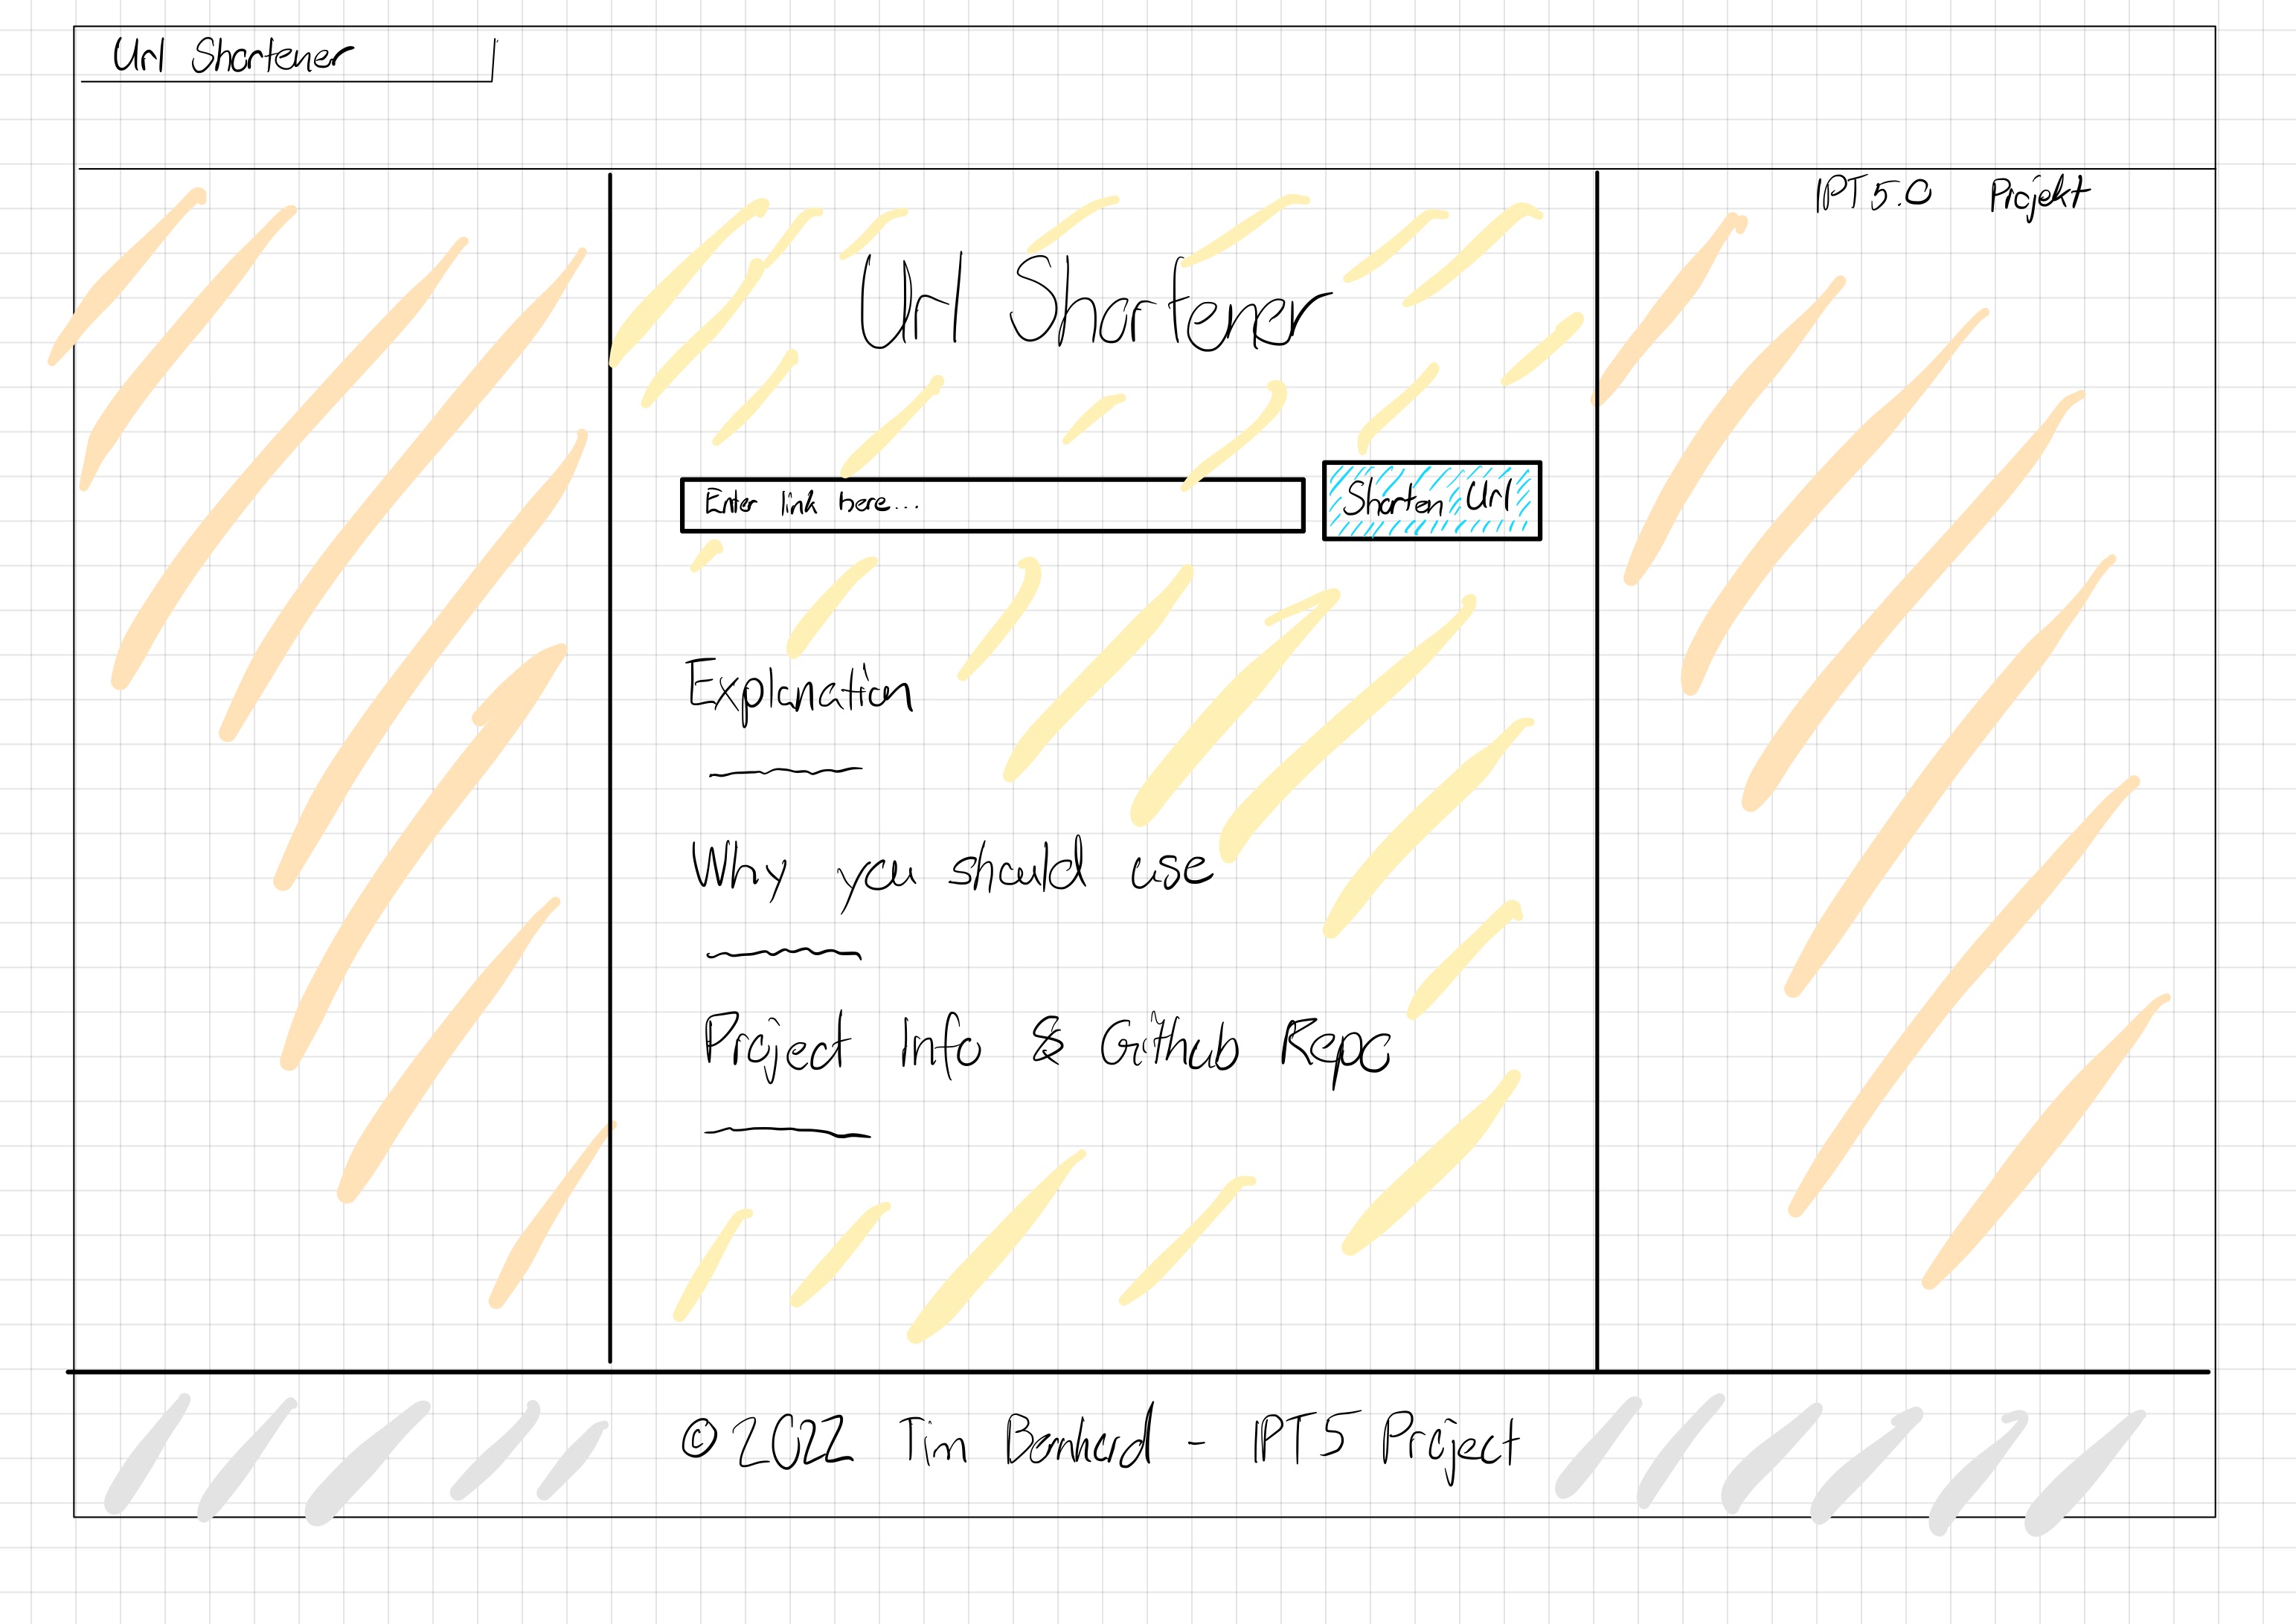 Url Shortener
IPT 5.0 Projekt
Url Shortener
Enter link here...
Shorten Url
Explanation
Why you should use
Project Info & Github Repo
© 2022 Tim Bernhard - IPT5 Project